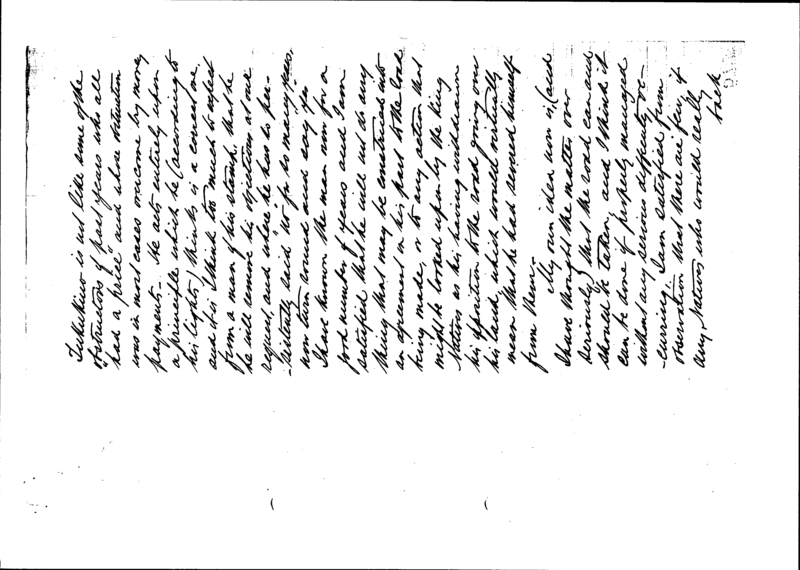 Tukukino is not like some of the
obstructors of past years who all
"had a price" and whose obstruction
was in most cases overcome by money
payments. He acts entirely upon
a principle which he (according to
his lights) thinks is a correct one,
and it is I think too much to expect
from a man of his stamp, that he
he will remove his objection at our
request, and where he has so per-
-sistently said "no" for so many years,
now turn round and say yes
I have known the man now for a
good number of years and I am
satisfied that he will not do any
thing that may be construed into
an agreement on his part to the road
being made, or to any action that
might be looked upon by the King
Natives as his having withdrawn
his opposition to the road going over
his land, which would virtually
mean that he had severed himself
from them.
My own idea now is, (and
I have thought the matter over
seriously) that the road can and
should be taken, and I think it
can be done if properly managed
without any serious difficulty oc-
-curring. I am satisfied from
observation that there are few, if
any, Natives who would really
back